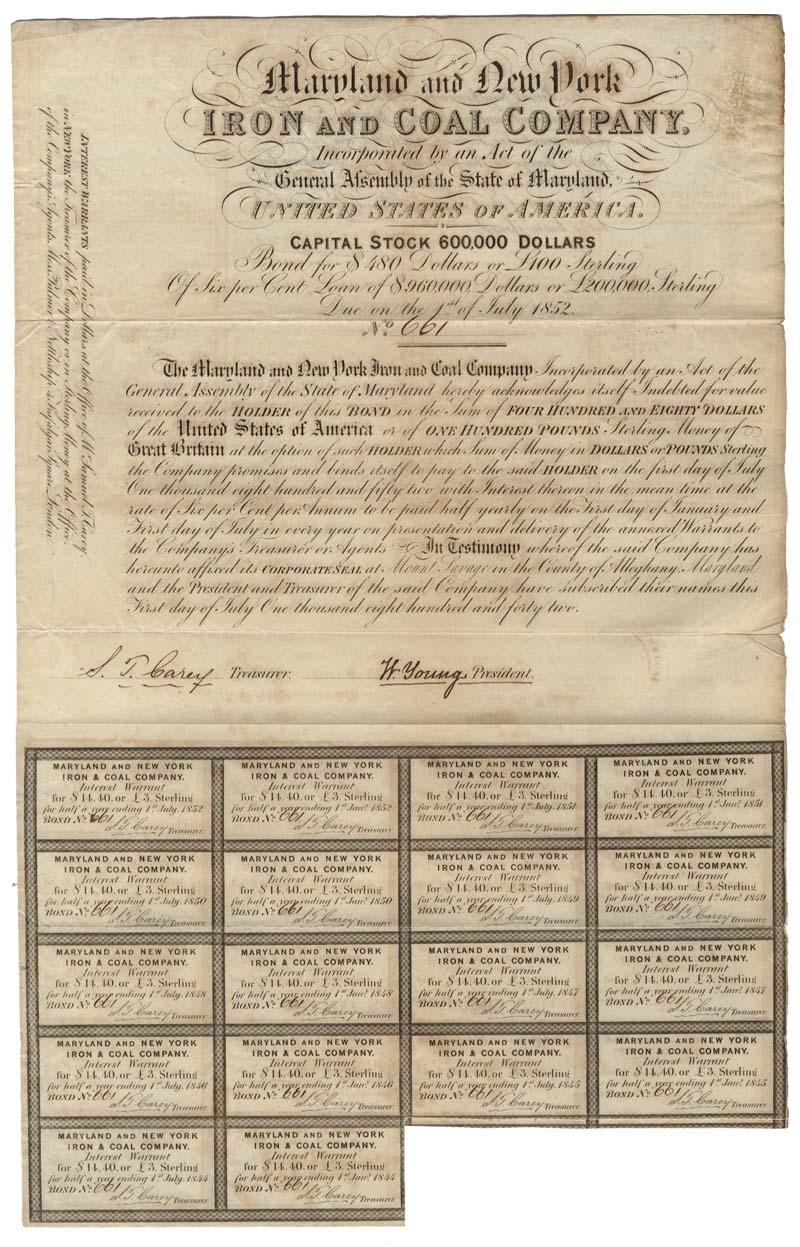 Maryland and New York
IRON AND COAL COMPANY.
Incorporated by an Act of the
General Assembly of the State of Maryland,
UNITED STATES OF AMERICA.
CAPITAL STOCK 600,000 DOLLARS
Bond for $480 Dollars or £100 Sterling
Of Six per Cent Loan of $960,000, Dollars or £200,000, Sterling
Due on the 1st of July 1852.
No 661
INTEREST WARRANTS paid in Dollars at the Office of Mr Samuel T. Carey
in NEW YORK the Treasurer of the Company or in Sterling Money at the Office
of the Company's Agents, Mess. Palmer & Nettleship, Trafalgar Square, London
The Maryland and New York Iron and Coal Company Incorporated by an Act of the
General Assembly of the State of Maryland hereby acknowledges itself Indebted for value
received to the HOLDER of this BOND in the Sum of FOUR HUNDRED AND EIGHTY DOLLARS
of the United States of America or of ONE HUNDRED POUNDS Sterling Money of
Great Britain at the option of such HOLDER which Sum of Money in DOLLARS or POUNDS Sterling
the Company promises and binds itself to pay to the said HOLDER on the first day of July
One thousand eight hundred and fifty two with Interest thereon in the mean time at the
rate of Six per Cent per Annum to be paid half yearly on the First day of January and
First day of July in every year on presentation and delivery of the annexed Warrants to
the Company's Treasurer or Agents In Testimony whereof the said Company has
hereunto affixed its CORPORATE SEAL at Mount Savage in the County of Alleghany, Maryland
and the President and Treasurer of the said Company have subscribed their names this
First day of July One thousand eight hundred and forty two.
S. T. Carey Treasurer. W. Young President.
MARYLAND AND NEW YORK
IRON & COAL COMPANY.
Interest Warrant
for $14.40. or £3. Sterling
for half a year ending 1st July, 1852
BOND No 661
S. T. Carey Treasurer.
MARYLAND AND NEW YORK
IRON & COAL COMPANY.
Interest Warrant
for $14.40. or £3. Sterling
for half a year ending 1st Jany 1852
BOND No 661
S. T. Carey Treasurer.
MARYLAND AND NEW YORK
IRON & COAL COMPANY.
Interest Warrant
for $14.40. or £3. Sterling
for half a year ending 1st July, 1851
BOND No 661
S. T. Carey Treasurer.
MARYLAND AND NEW YORK
IRON & COAL COMPANY.
Interest Warrant
for $14.40. or £3. Sterling
for half a year ending 1st Jany 1851
BOND No 661
S. T. Carey Treasurer.
MARYLAND AND NEW YORK
IRON & COAL COMPANY.
Interest Warrant
for $14.40. or £3. Sterling
for half a year ending 1st July, 1850
BOND No 661
S. T. Carey Treasurer.
MARYLAND AND NEW YORK
IRON & COAL COMPANY.
Interest Warrant
for $14.40. or £3. Sterling
for half a year ending 1st Jany 1850
BOND No 661
S. T. Carey Treasurer.
MARYLAND AND NEW YORK
IRON & COAL COMPANY.
Interest Warrant
for $14.40. or £3. Sterling
for half a year ending 1st July, 1849
BOND No 661
S. T. Carey Treasurer.
MARYLAND AND NEW YORK
IRON & COAL COMPANY.
Interest Warrant
for $14.40. or £3. Sterling
for half a year ending 1st Jany 1849
BOND No 661
S. T. Carey Treasurer.
MARYLAND AND NEW YORK
IRON & COAL COMPANY.
Interest Warrant
for $14.40. or £3. Sterling
for half a year ending 1st July, 1848
BOND No 661
S. T. Carey Treasurer.
MARYLAND AND NEW YORK
IRON & COAL COMPANY.
Interest Warrant
for $14.40. or £3. Sterling
for half a year ending 1st Jany 1848
BOND No 661
S. T. Carey Treasurer.
MARYLAND AND NEW YORK
IRON & COAL COMPANY.
Interest Warrant
for $14.40. or £3. Sterling
for half a year ending 1st July, 1847
BOND No 661
S. T. Carey Treasurer.
MARYLAND AND NEW YORK
IRON & COAL COMPANY.
Interest Warrant
for $14.40. or £3. Sterling
for half a year ending 1st Jany 1847
BOND No 661
S. T. Carey Treasurer.
MARYLAND AND NEW YORK
IRON & COAL COMPANY.
Interest Warrant
for $14.40. or £3. Sterling
for half a year ending 1st July, 1846
BOND No 661
S. T. Carey Treasurer.
MARYLAND AND NEW YORK
IRON & COAL COMPANY.
Interest Warrant
for $14.40. or £3. Sterling
for half a year ending 1st Jany 1846
BOND No 661
S. T. Carey Treasurer.
MARYLAND AND NEW YORK
IRON & COAL COMPANY.
Interest Warrant
for $14.40. or £3. Sterling
for half a year ending 1st July, 1845
BOND No 661
S. T. Carey Treasurer.
MARYLAND AND NEW YORK
IRON & COAL COMPANY.
Interest Warrant
for $14.40. or £3. Sterling
for half a year ending 1st Jany 1845
BOND No 661
S. T. Carey Treasurer.
MARYLAND AND NEW YORK
IRON & COAL COMPANY.
Interest Warrant
for $14.40. or £3. Sterling
for half a year ending 1st July, 1844
BOND No 661
S. T. Carey Treasurer.
MARYLAND AND NEW YORK
IRON & COAL COMPANY.
Interest Warrant
for $14.40. or £3. Sterling
for half a year ending 1st Jany 1844
BOND No 661
S. T. Carey Treasurer.